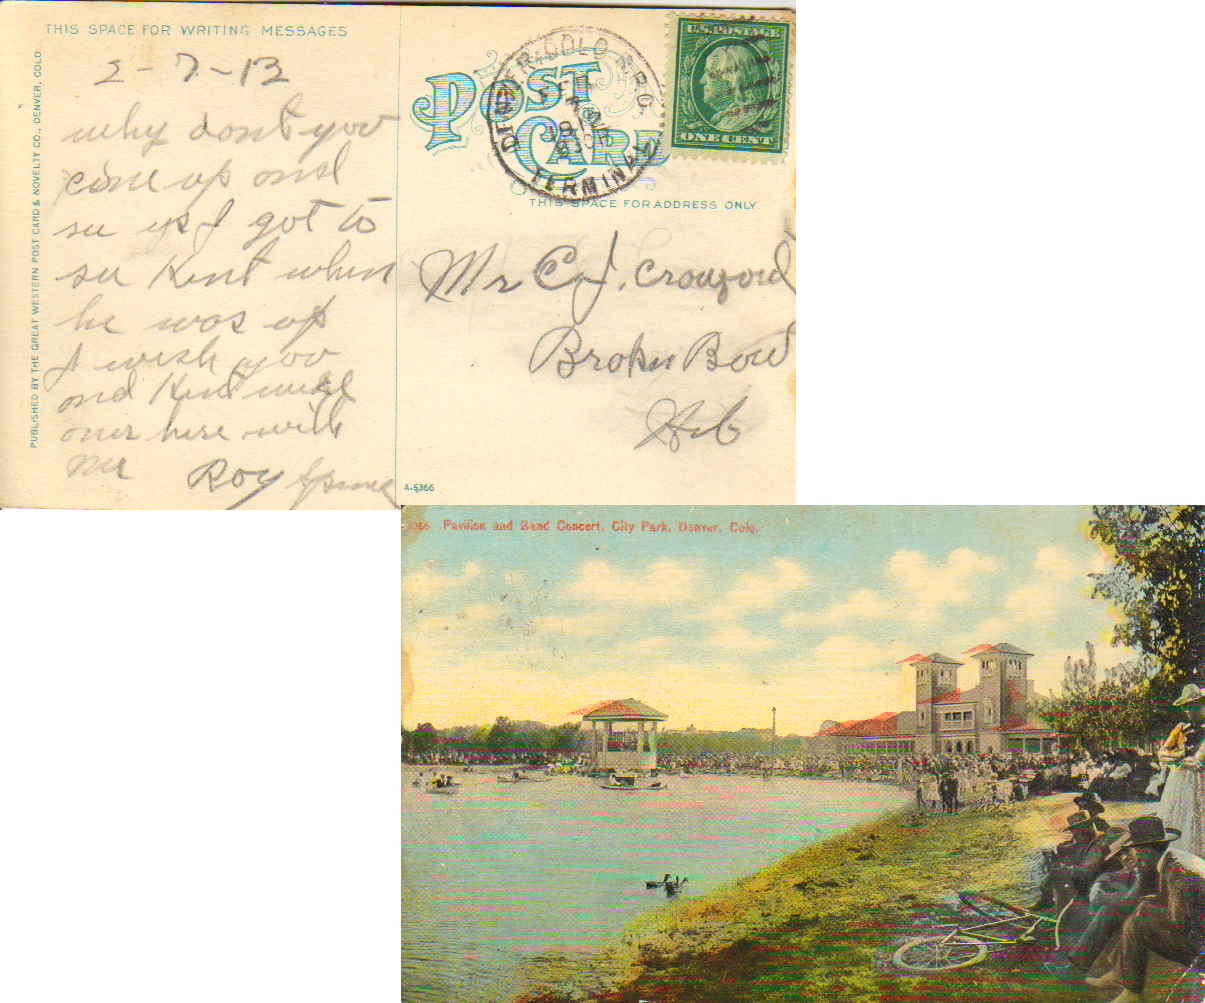 THIS SPACE FOR WRITING MESSAGES
PUBLISHED BY THE GREAT WESTERN POST CARD & NOVELTY CO., DENVER, COLO
2-7-13
why dont you
come up and
see us I got to
see Kent when
he was up
I wish you
and Kent
over here with
me
Roy
POST
CARD
DENVER, COLO R.P.O.
FEB
TERMINAL
U.S. POSTAGE
ONE CENT
THIS SPACE FOR ADDRESS ONLY
Mr C J. Crawford
Broken Bow
Neb
A-5366
Pavilion and Band Concert, City Park, Denver, Colo.